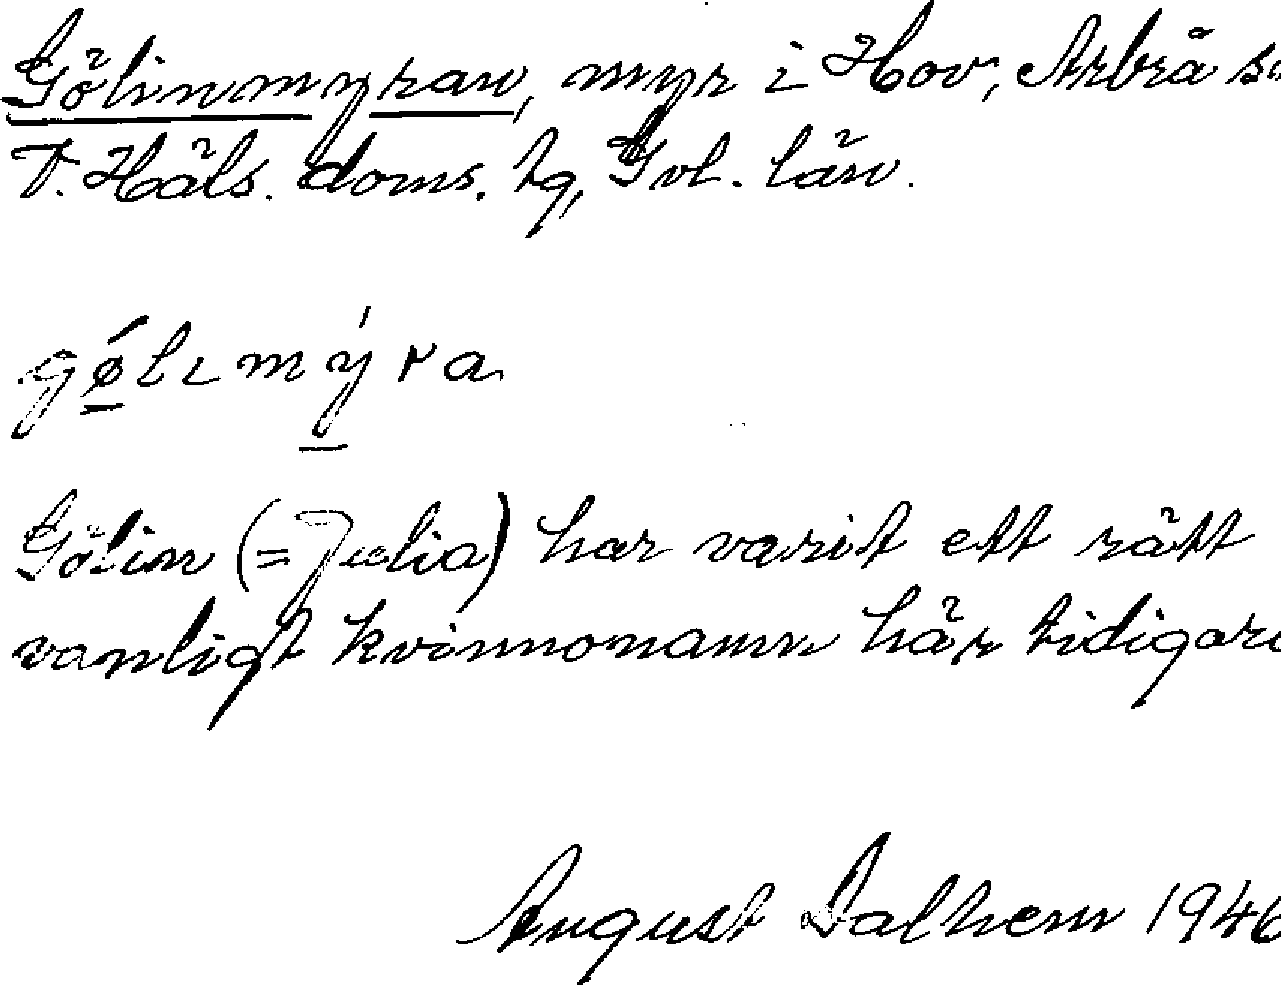 Gölinmyran, myr i Hov, Arbrå sn
V. Häls. doms. tg, Gvl. län.
gǿlɩmýra
Gölin (= Julia) har varit ett rätt
vanligt kvinnonamn här tidigare
August Dalhem 1946